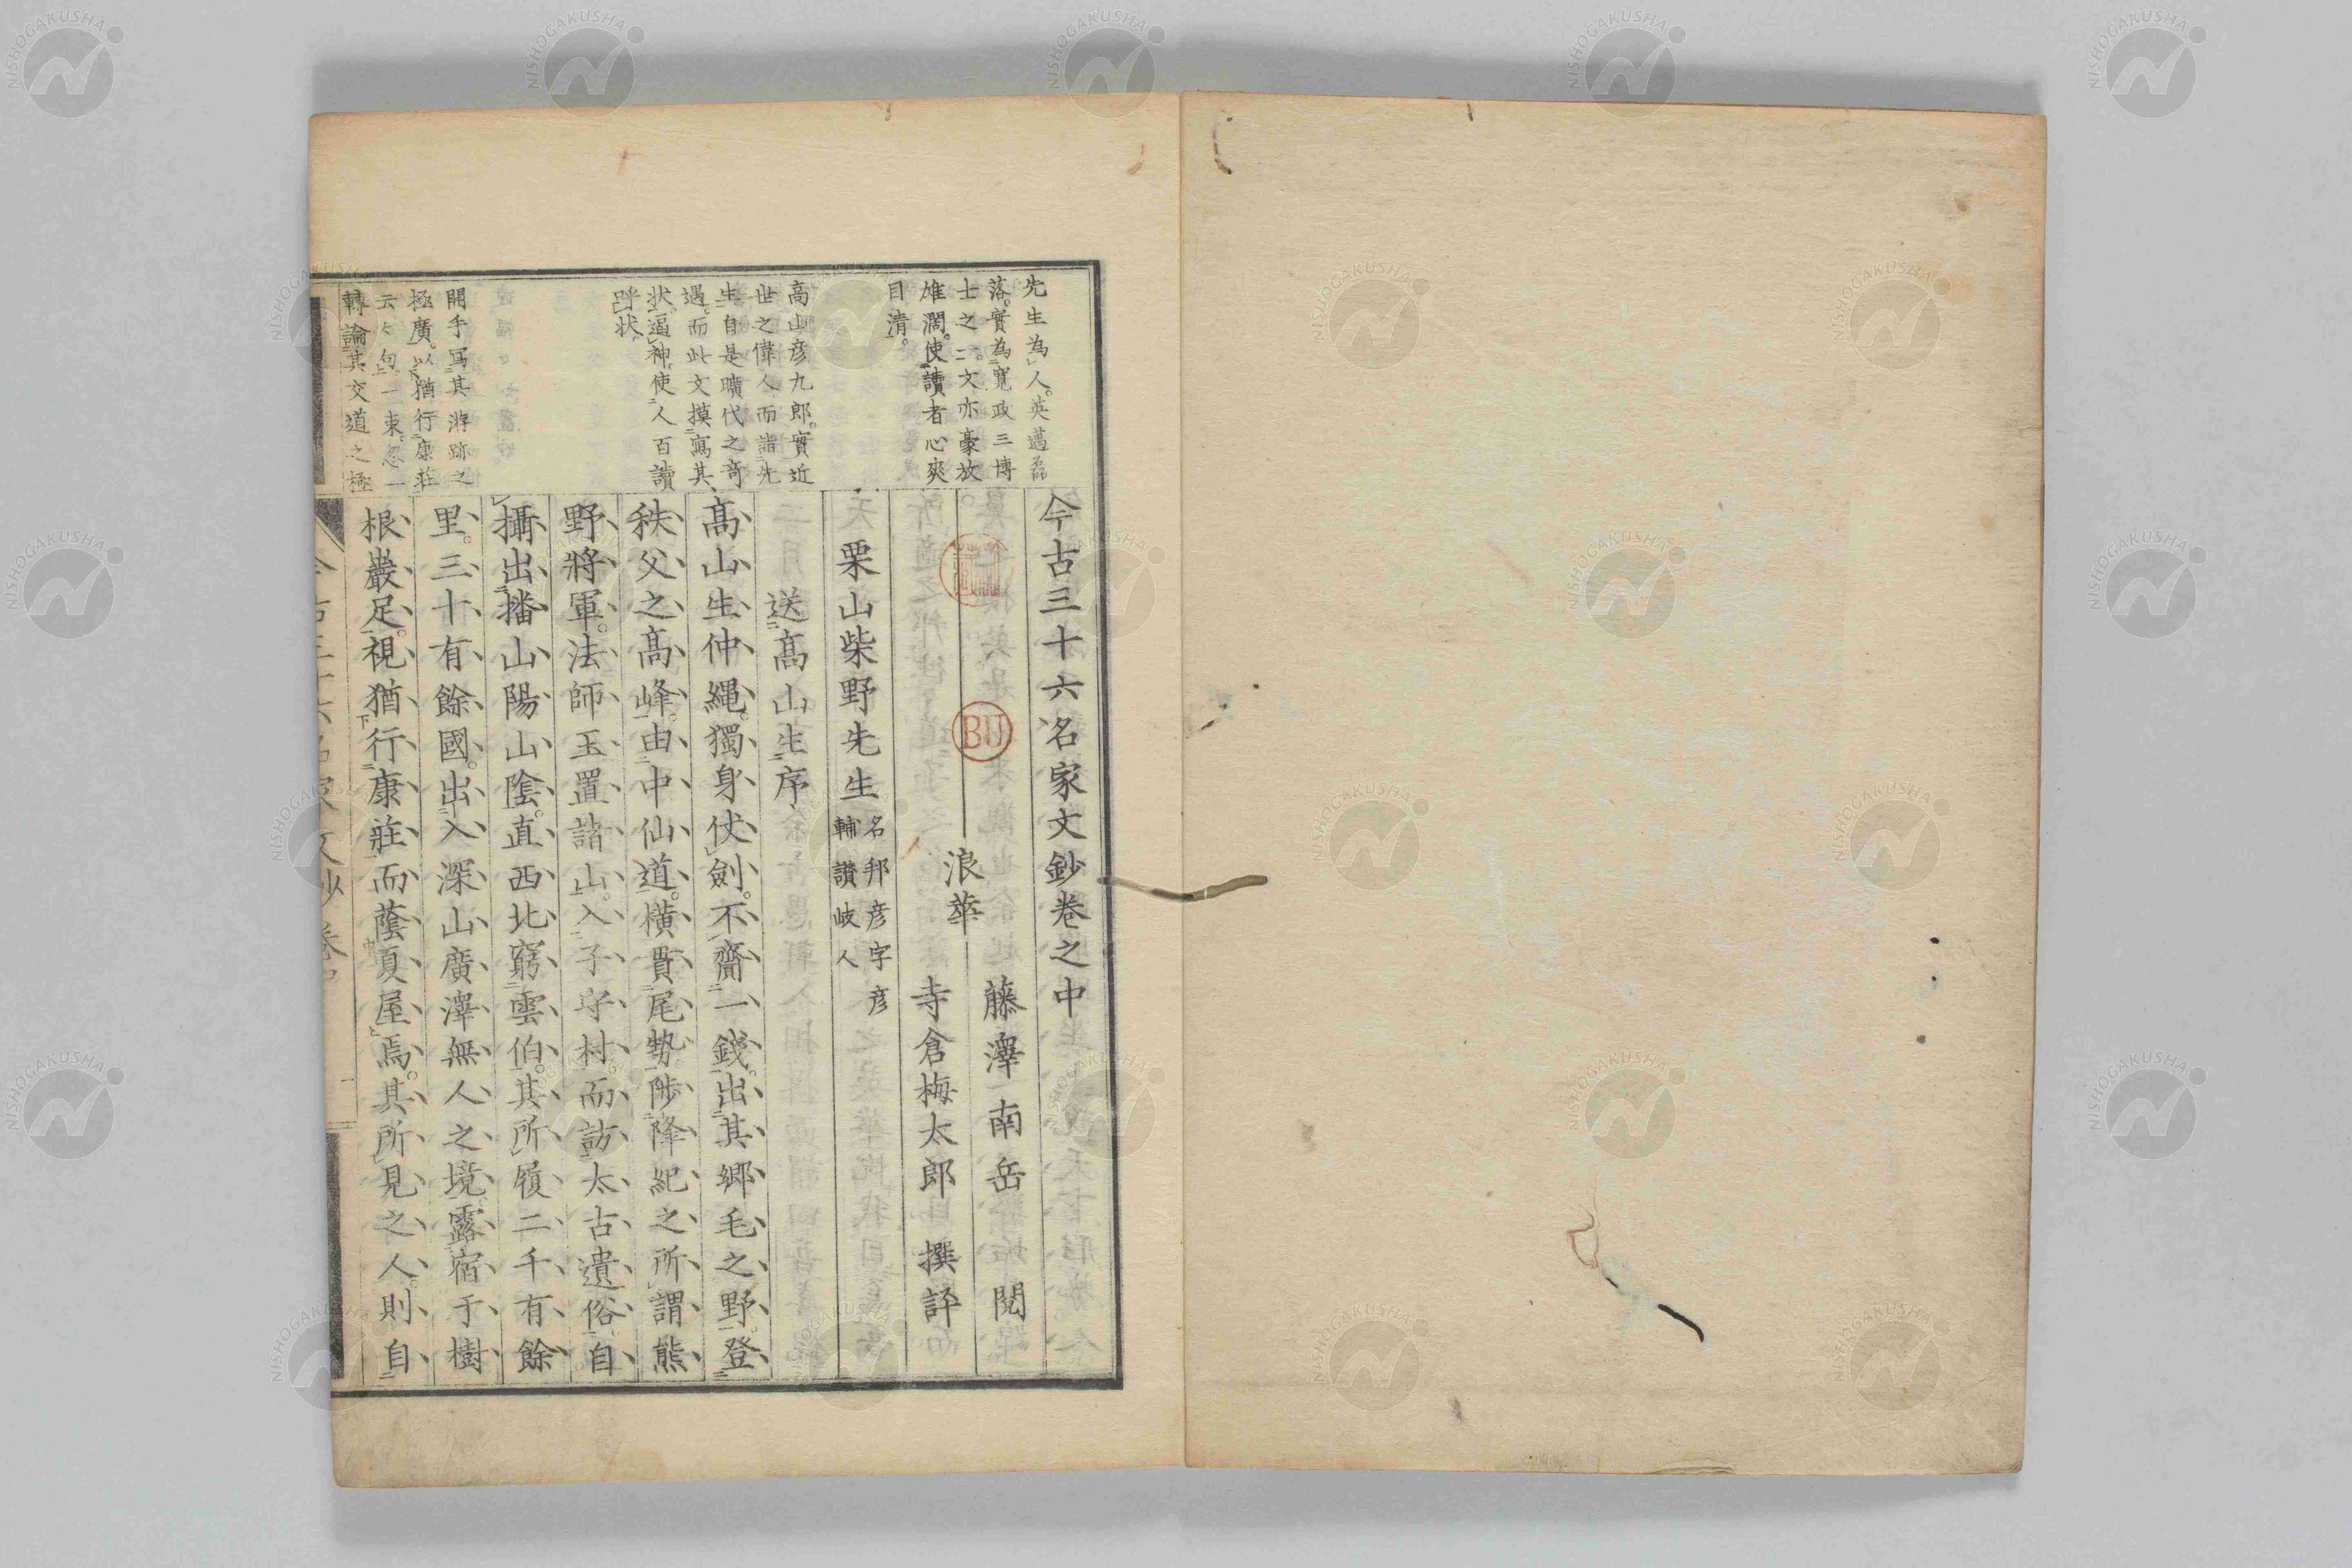 今古三十六名家文鈔卷之中
藤澤南岳閱
浪華
寺倉梅太郎撰評
栗山柴野先生
名邦彦字彦
輔讃岐人
送髙山生序
髙山生仲縄。獨身仗劍。不齎一錢。出其郷毛之野。登
秩父之髙峰。由中仙道。横貫尾勢。陟降紀之所謂熊
野將軍。法師玉置諸山。入子守村。而訪太古遺俗。自
攝出播山陽山陰。直西北窮雲伯。其所履二千有餘
里。三十有餘國。出入深山廣澤無人之境。露宿于樹
根巖足。視猶行康莊而蔭夏屋焉。其所見之人。則自
先生為人。英邁磊
落。實為寛政三博
士之一。文亦豪放
雄濶。使讀者心爽
目清。
高山彦九郎。實近
世之偉人而詣先
生自是曠代之奇
遇。而此文摸寫其
状。逼神使人百讀
呼状
開手寫其游跡之
極廣。以猶行康莊
云々句一束。忽一
轉論其交道之極
BU
NISHOGAKUSHA